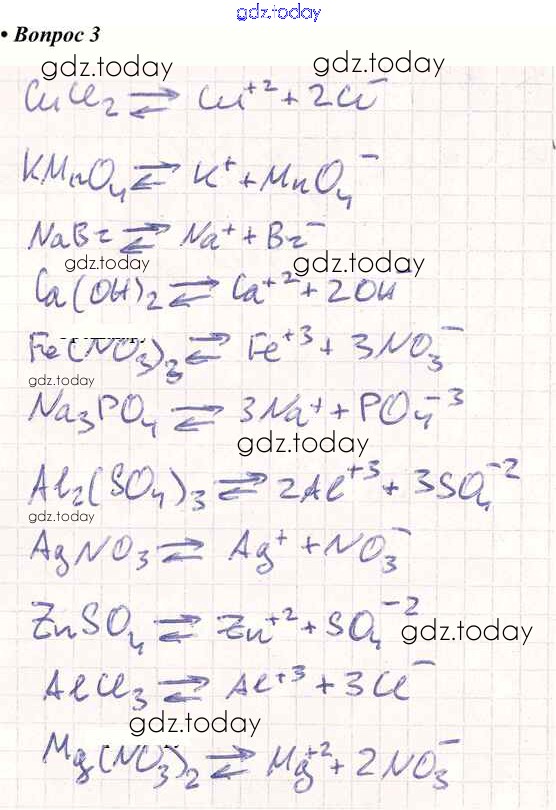 gdz.today
• Вопрос 3
gdz.today gdz.today
CuCl₂ ⇄ Cu⁺² + 2Cl⁻
KMnO₄ ⇄ K⁺ + MnO₄⁻
NaBr ⇄ Na⁺ + Br⁻
gdz.today gdz.today
Ca(OH)₂ ⇄ Ca⁺² + 2OH⁻
Fe(NO₃)₃ ⇄ Fe⁺³ + 3NO₃⁻
gdz.today
Na₃PO₄ ⇄ 3Na⁺ + PO₄⁻³
gdz.today
Al₂(SO₄)₃ ⇄ 2Al⁺³ + 3SO₄⁻²
gdz.today
AgNO₃ ⇄ Ag⁺ + NO₃⁻
ZnSO₄ ⇄ Zn⁺² + SO₄⁻²
gdz.today
AlCl₃ ⇄ Al⁺³ + 3Cl⁻
gdz.today
Mg(NO₃)₂ ⇄ Mg⁺² + 2NO₃⁻